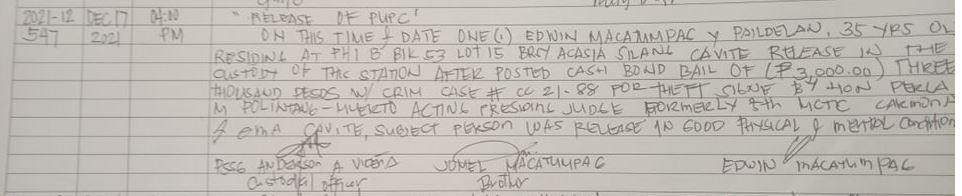 2021-12 DEC 17 04:00 "RELEASE OF PUPC"
547 2021 PM ON THIS TIME & DATE ONE (1) EDWIN MACATUMPAG Y PAILDELAN, 35 YRS OLD
RESIDING AT PH1 B BLK 53 LOT 15 BRGY ACASIA SILANG CAVITE RELEASE IN THE
CUSTODY OF THIS STATION AFTER POSTED CASH BOND BAIL OF (₱3,000.00) THREE
THOUSAND PESOS W/ CRIM CASE # CC 21-88 FOR THEFT SIGNE BY HON PERLA
M POLINTANG-HUERTO ACTING PRESIDING JUDGE FORMERLY 8th MCTC CARMONA
& GMA CAVITE, SUBJECT PERSON WAS RELEASE IN GOOD PHYSICAL & MENTAL CONDITION
PSSG ANDERSON A VICEÑA JOMEL MACATUMPAG EDWIN MACATUMPAG
Custodial officer Brother